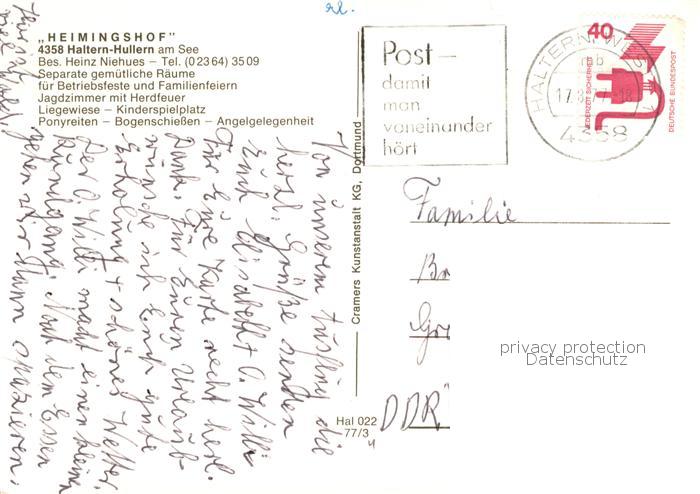 rl.
„HEIMINGSHOF"
4358 Haltern-Hullern am See
Bes. Heinz Niehues – Tel. (0 23 64) 35 09
Separate gemütliche Räume
für Betriebsfeste und Familienfeiern
Jagdzimmer mit Herdfeuer
Liegewiese – Kinderspielplatz
Ponyreiten – Bogenschießen – Angelgelegenheit
Post –
damit
man
voneinander
hört
HALTERN, WES
4358
40
JEDERZEIT SICHERHEIT
DEUTSCHE BUNDESPOST
Cramers Kunstanstalt KG, Dortmund
Hal 022
77/3
Von unserem Ausflug die
herzl. Grüße senden
Euch Elisabeth + O. Willi
Für Eure Karte recht herl.
Dank. Für Euren Urlaub
wünsche ich Euch gute
Erholung + schönes Wetter.
Der O. Willi macht einen kleinen
Rundgang. Nach dem Essen
gehen wir dann spazieren.
Hier ist
viel Wald.
Familie
DDR
privacy protection
Datenschutz